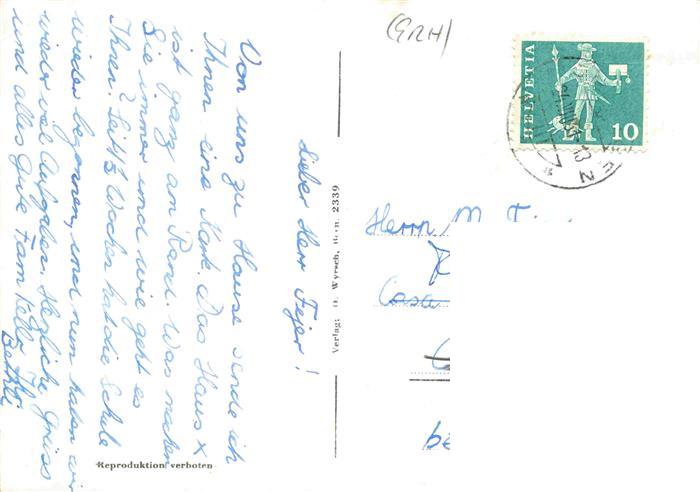 Lieber Herr Fejer!
Von uns zu Hause sende ich
Ihnen eine Kart. Das Haus x
ist ganz am Rand. Was machen
Sie immer und wie geht es
Ihnen? Seit 4½ Wochen hat die Schule
wieder begonnen, und nun haben wir
wieder viel Aufgaben. Herzliche Grüsse
und alles Gute Fam. Kell
Bethli
Verlag: Wyrsch, 2339
Reproduktion verboten
(GRH)
HELVETIA
10
Herrn M.
Casa